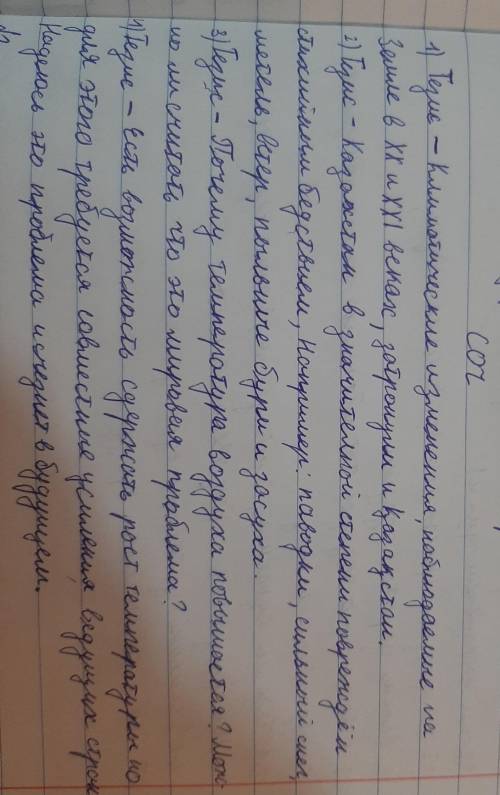 СОЧ
1) Тезис – Климатические изменения, наблюдаемые на
Земле в XX и XXI веках, затронули и Казахстан.
2) Тезис – Казахстан в значительной степени повреждён
стихийным бедствием, например: паводки, сильный снег,
метель, ветер, пыльные бури и засуха.
3) Тезис – Почему температура воздуха повышается? Мож-
но ли считать что это мировая проблема?
4) Тезис – Есть возможность сдержать рост температуры но
для этого требуется совместные усиления, ведущих стран
Надеюсь это проблема исчезнет в будущем.